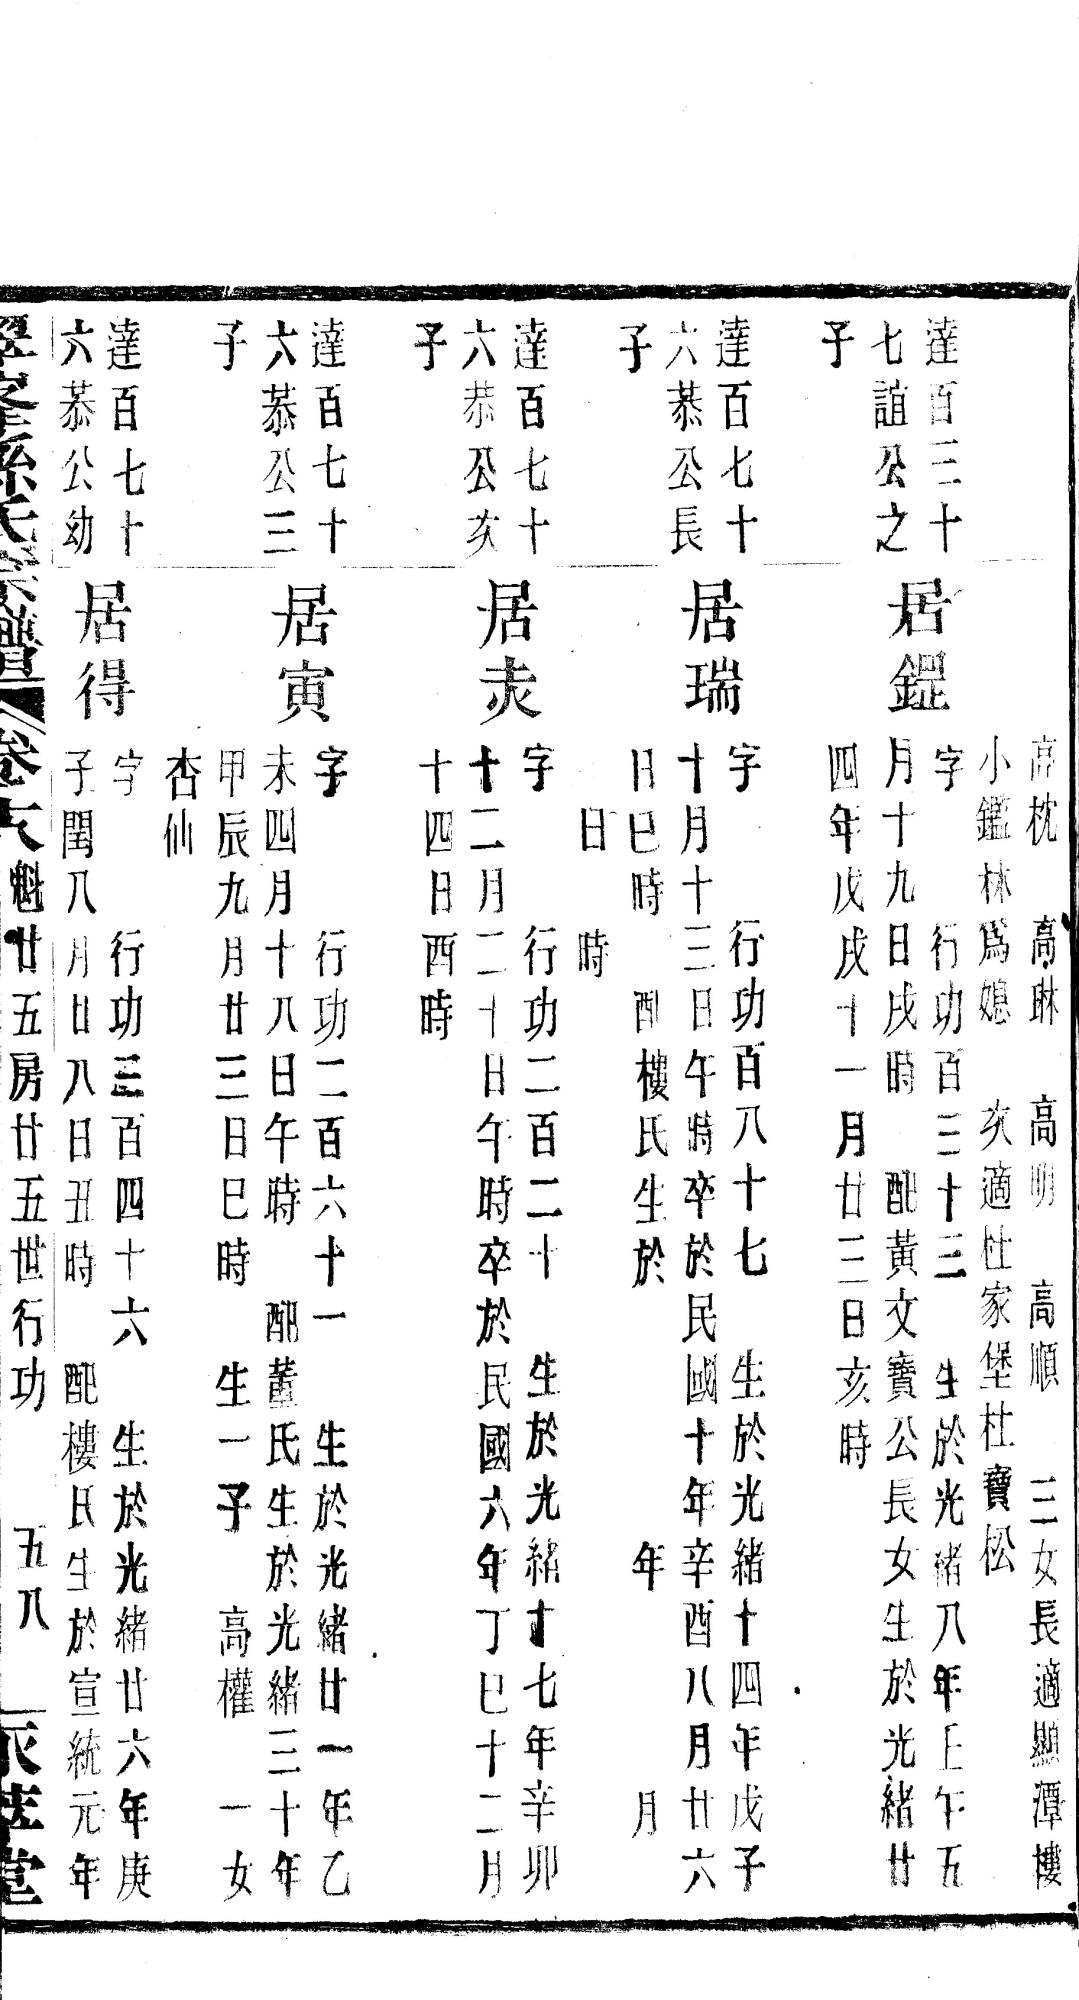 高枕　高琳　高明　高順　三女長適顯潭樓
小鑑林爲媳　次適杜家堡杜寶松
達百三十
七誼公之
子
居鋥
字　行功百三十三　生於光緒八年壬午五
月十九日戌時　配黃文寶公長女生於光緒廿
四年戊戌十一月廿三日亥時
達百七十
六恭公長
子
居瑞
字　行功百八十七　生於光緒十四年戊子
十月十三日午時卒於民國十年辛酉八月廿六
日巳時　配樓氏生於　年　月
日　時
達百七十
六恭公次
子
居炗
字　行功二百二十　生於光緒十七年辛卯
十二月二十日午時卒於民國六年丁巳十二月
十四日酉時
達百七十
六恭公三
子
居寅
字　行功二百六十一　生於光緒廿一年乙
未四月十八日午時　配董氏生於光緒三十年
甲辰九月廿三日巳時　生一子　高權　一女
杏仙
達百七十
六恭公幼
居得
字　行功三百四十六　生於光緒廿六年庚
子閏八月廿八日丑時　配樓氏生於宣統元年
孫氏宗譜　卷六　魁廿五房廿五世行功　五八　堂